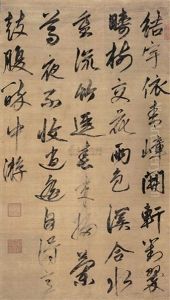 結宇依青嶂開軒對翠
疇樹交花兩色溪合水
重流竹逕春來掃蘭
尊夜不收逍遙自得意
鼓腹醉中游